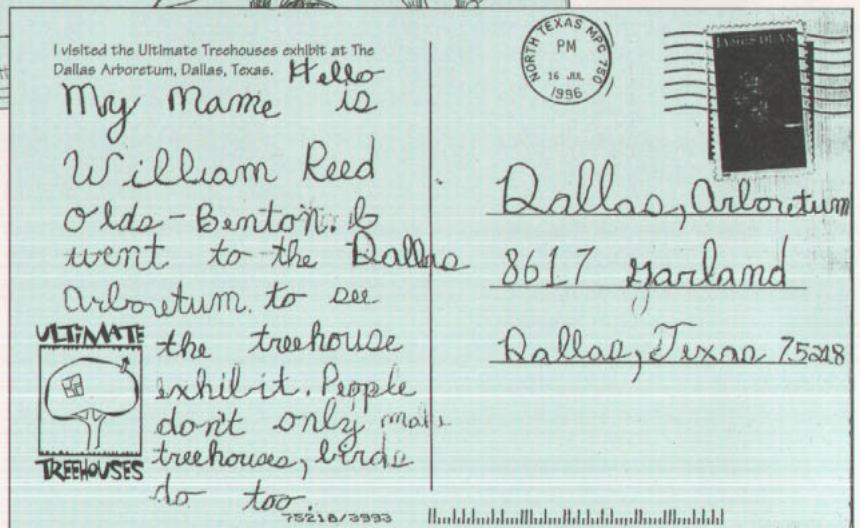 I visited the Ultimate Treehouses exhibit at The
Dallas Arboretum, Dallas, Texas.
Hello
My Name is
William Reed
Olds-Benton. I
went to the Dallas
arboretum. to see
the treehouse
exhibit. People
don't only make
treehouses, birds
do too.
ULTIMATE
TREEHOUSES
75218/3993
NORTH TEXAS MPC 750
PM
16 JUL
1996
JAMES DEAN
Dallas, Arboretum
8617 Garland
Dallas, Texas 75218